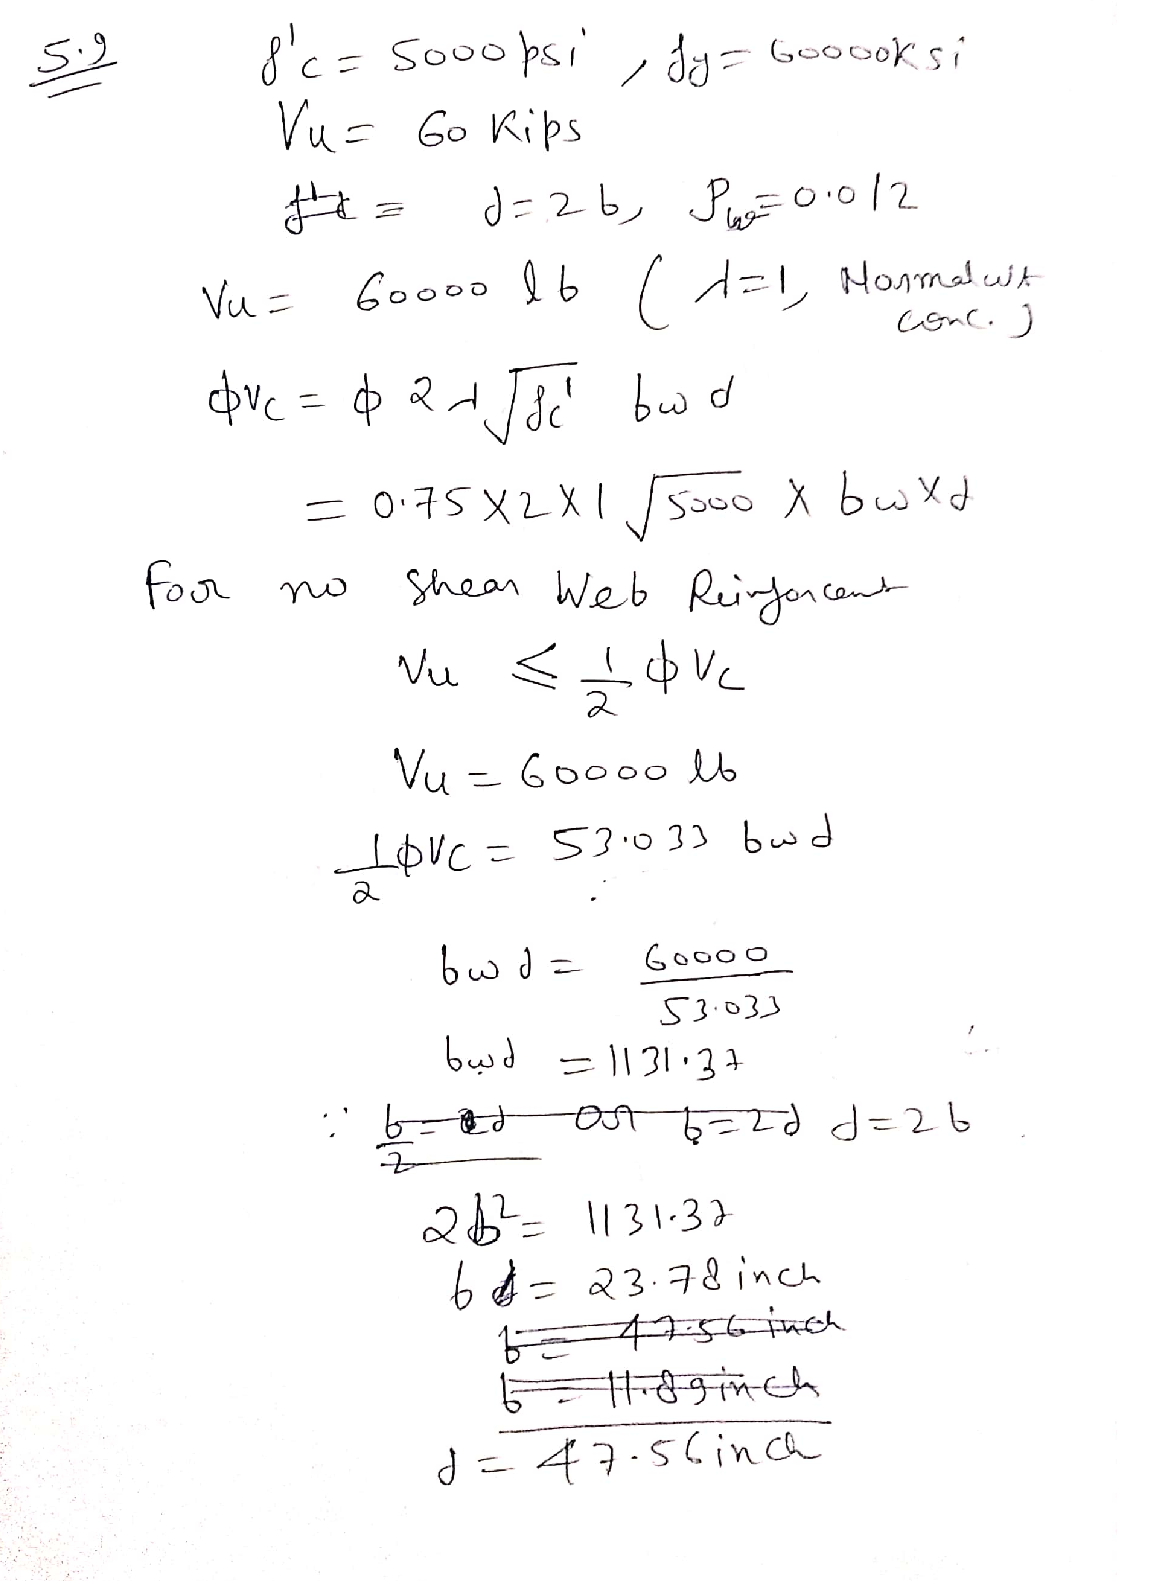 5.9 f'c = 5000 psi , fy = 60000ksi
Vu = 60 Kips
= d = 2b, ρ = 0.012
Vu = 60000 lb ( λ=1, Normal wt
conc. )
ϕVc = ϕ 2 λ √fc' bw d
= 0.75 X 2 X 1 √5000 X bw X d
For no Shear Web Reinforcent
Vu ≤ 1/2 ϕ Vc
Vu = 60000 lb
1/2 ϕVc = 53.033 bw d
bw d = 60000
53.033
bwd = 1131.37
∵ b/2 = d or b = 2d d = 2b
2b² = 1131.37
b = 23.78 inch
b = 47.56 inch
b = 11.89 inch
d = 47.56 inch